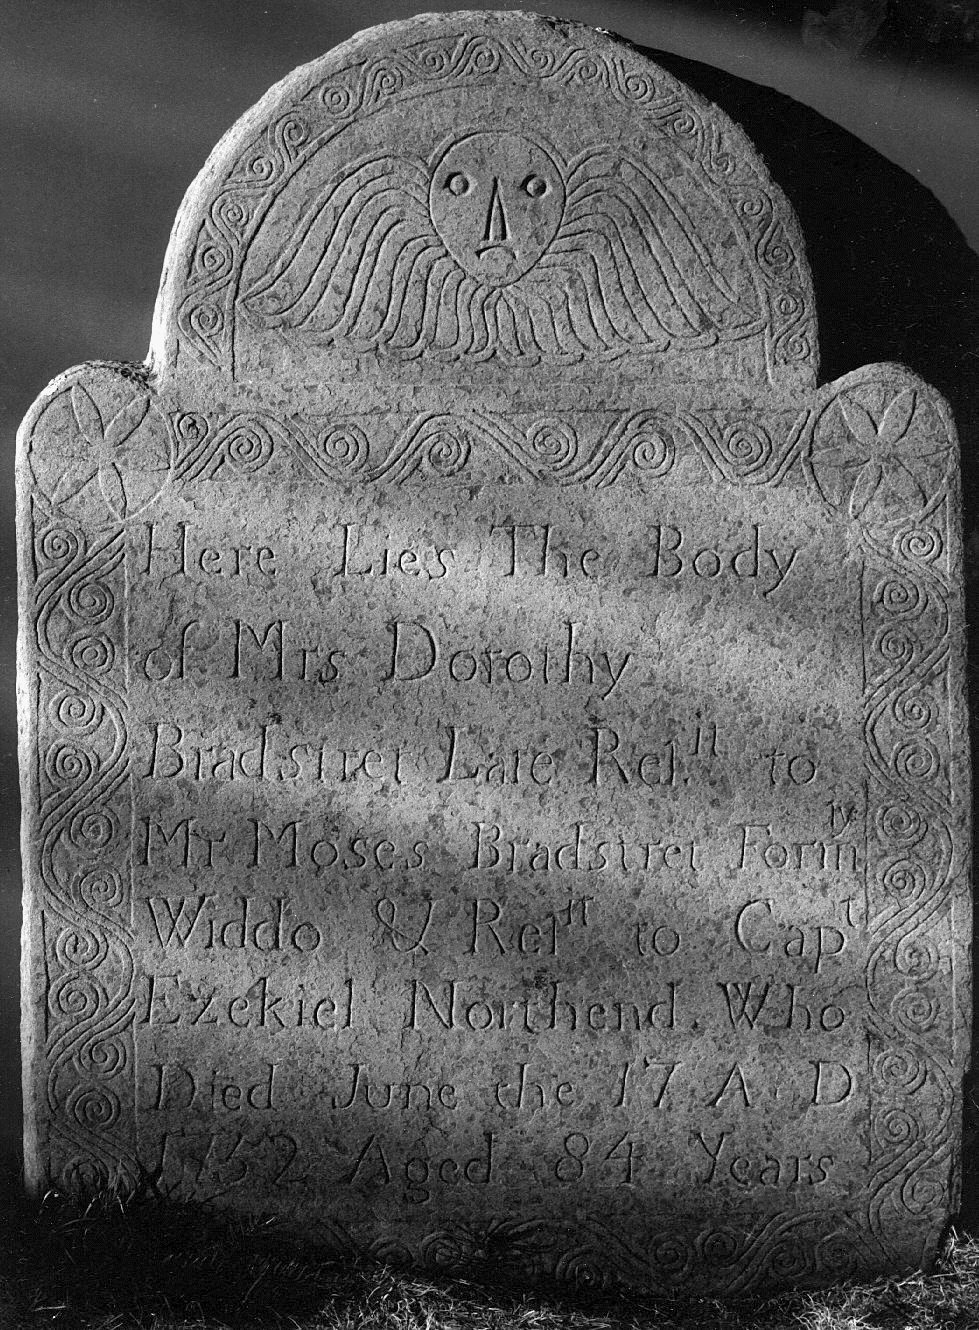 Here Lies The Body
of Mrs Dorothy
Bradstret Late Reitt to
Mr Moses Bradstret Formly
Widdo & Reitt to Capt
Ezekiel Northend Who
Died June the 17 A D
1752 Aged 84 Years